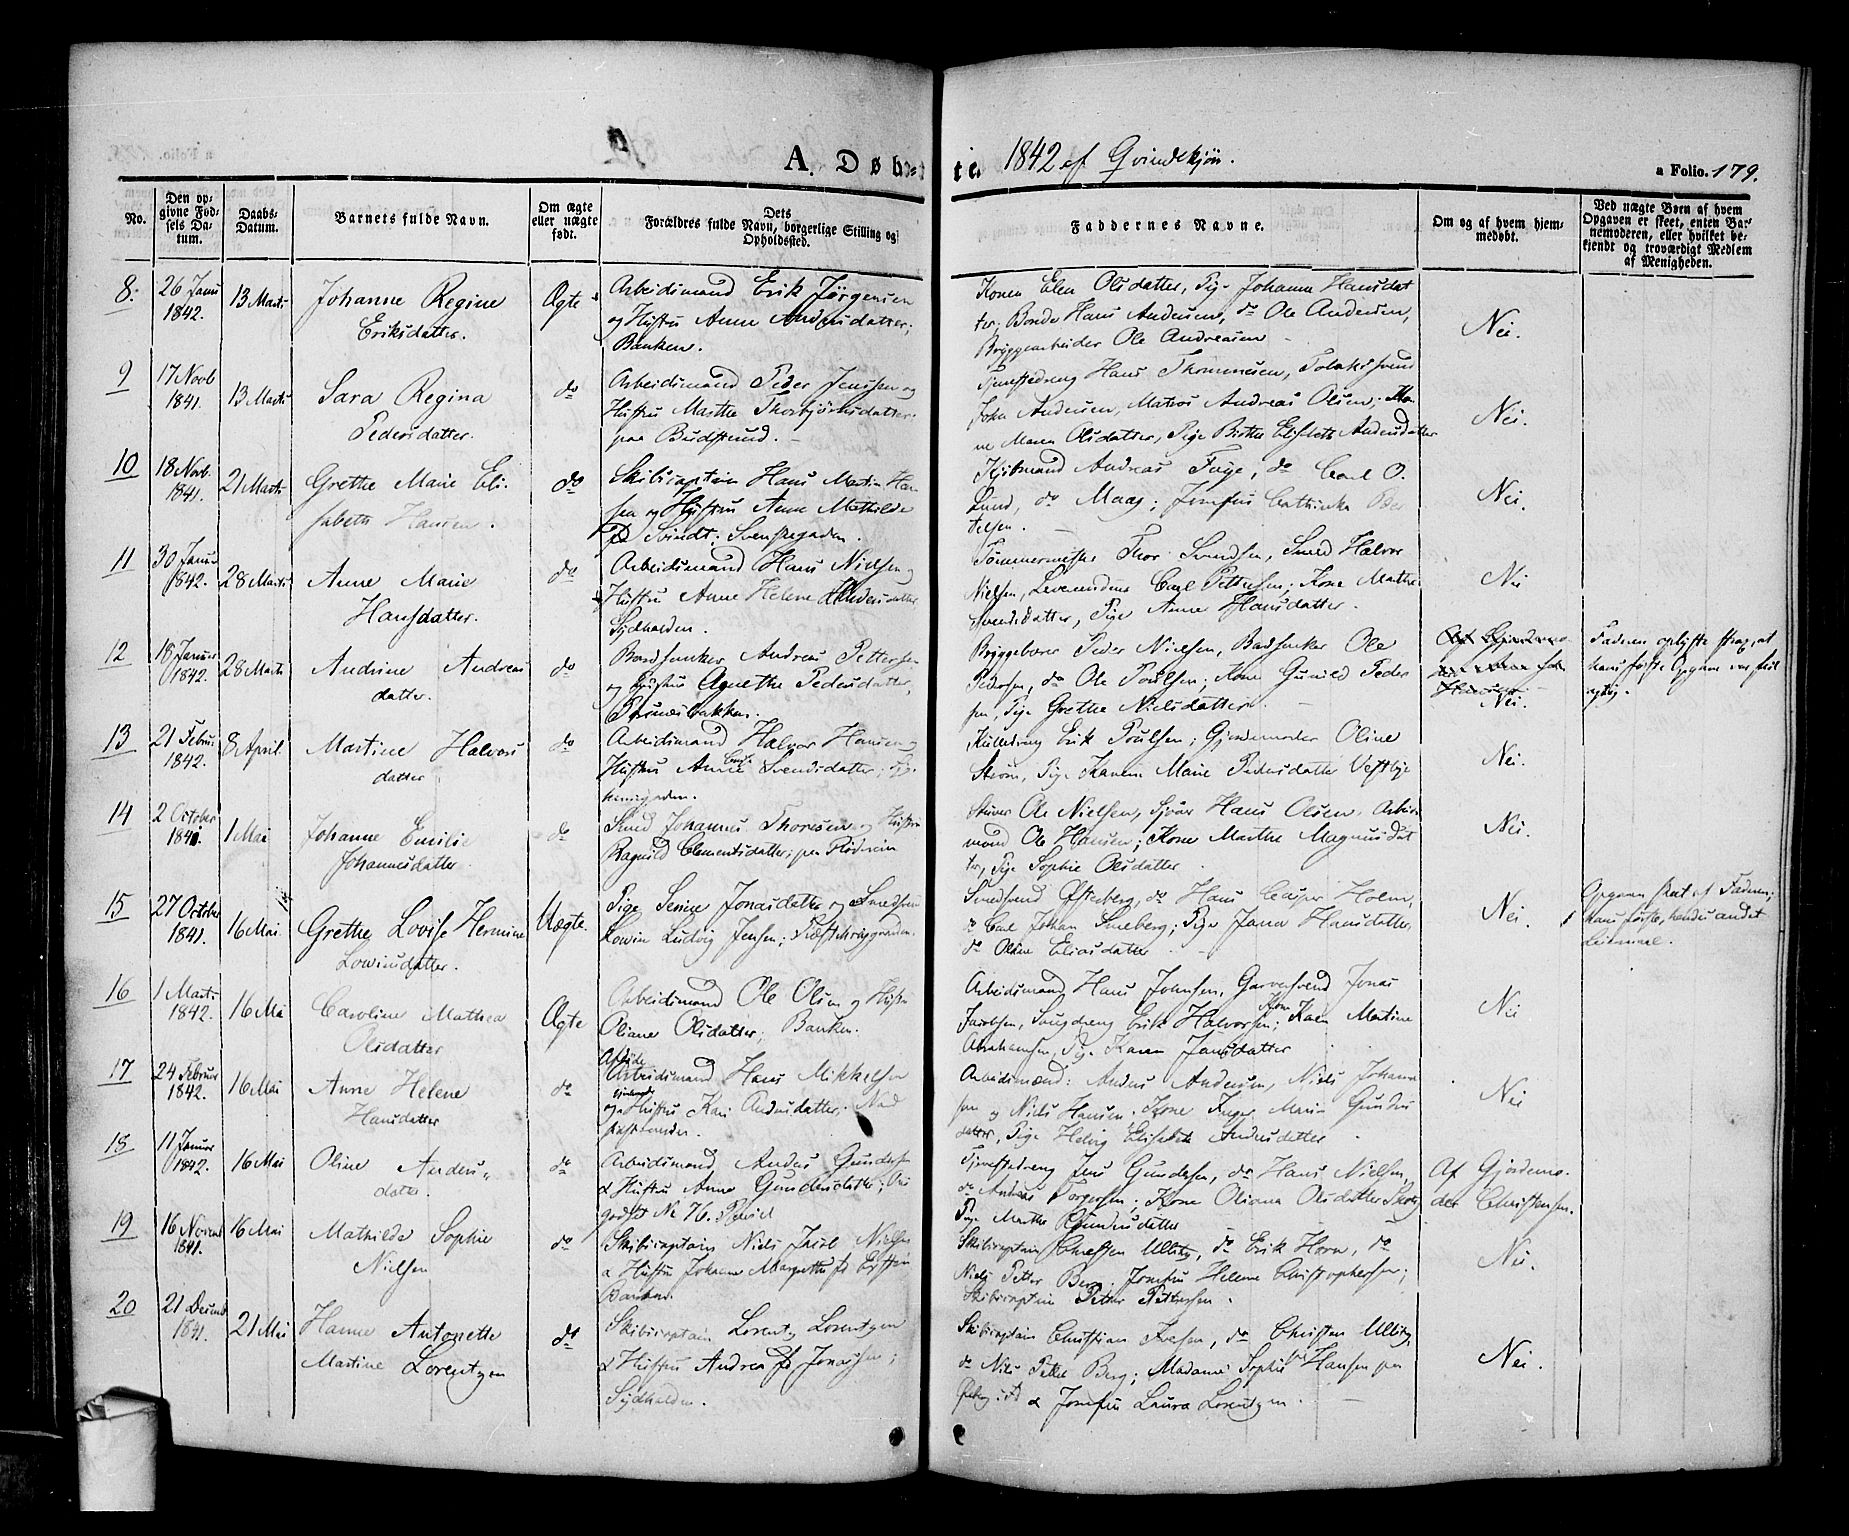 A. Døbte 1842 af Qvindekjøn.
a Folio. 179.
No.
Den opgivne Fødsels Datum.
Daabs-Datum.
Barnets fulde Navn.
Om ægte eller uægte født.
Dets Forældres fulde Navn, borgerlige Stilling og Opholdssted.
Faddernes Navne.
Om og af hvem hjemmedøbt.
Ved uægte Børn af hvem Opgaven er skeet, enten Barnemoderen, eller hvilket bekjendt og troværdigt Medlem af Menigheden.
8.
26 Janu
1842.
13 Marts
Johanne Regine
Eriksdatter.
Ægte
Arbeidsmand Erik Jørgensen
og Hustru Anne Andersdatter;
Banken.
Konen Elen Olsdatter, Pige Johanne Hansdat
ter, Bonde Hans Andersen, do Ole Andersen,
Bryggearbeider Ole Andreasen
Nei.
9
17 Novb
1841.
13 Marts
Sara Regina
Pedersdatter.
do
Arbeidsmand Peder Jenssen og
Hustru Marthe Thorbjørnsdatter
paa Budstrund.
Tjenestedreng Hans Thommesen,
John Andersen, Matros Andreas Olsen; Ko
ne Maren Olsdatter, Pige Birthe Elisabeth Andersdatter
Nei.
10
18 Novb
1841.
21 Marts
Grethe Marie Eli
sabeth Hansen.
do
Skibscaptain Hans Martin Han
sen og Hustru Anne Mathilde
Svindt; Svenskegaden.
Kjøbmand Andreas Fuge, do Carl O.
Lund, do Maag; Jomfru Cathrinka Ber
telsen.
Nei.
11
30 Janu
1842.
28 Marts
Anne Marie
Hansdatter.
do
Arbeidsmand Hans Nielsen og
Hustru Anne Helene Andersdatter
Sydhalden.
Tømmermester Thor Svendsen, Smed Halvor
Nielsen, Carl Pettersen; Kone Marthe
Svendsdatter, Pige Anne Hansdatter.
Nei
12
18 Januar
1842.
28 Marts
Andrine Andreas
datter.
do
Bordsenker Andreas Pettersen
og Hustru Agnethe Pedersdatter,
Brygge Peder Nielsen, Badsenker Ole
Pedersen, do Ole Poulsen; Kone Gunild Peder
sen, Pige Grethe Nielsdatter.
Nei.
Faderen oplyste strax, at
hans første Opgave var feil
agtig.
13
21 Febru
1842.
8 April
Martine Halvors
datter
do
Arbeidsmand Halvor Hansen og
Hustru Anne Svendsdatter;
Erik Poulsen; Gjordemoder Oline
Strøm, Pige Karen Marie Pedersdatter Vestbye
Nei.
14
2 October
1841.
1 Mai
Johanne Emilie
Johannesdatter.
do
Smed Johannes Thoresen og Hustru
Ragnild Clementsdatter; paa Rødsmin
Ole Nielsen, Hans Olsen, Arbeids
mand Ole Hansen; Kone Marthe Magnusdat
ter, Pige Sophie Olsdatter.
Nei.
15
27 October
1841.
16 Mai
Grethe Lovise Hermine
Lowinsdatter.
Uægte.
Pige Serine Jonasdatter og Smedsven
Lowin Ludvig Jensen;
Smedsvend Østeberg, do Hans Casper Holm,
do Carl Johan Sneberg; Pige Janna Hansdatter,
do Oline Eliasdatter
Nei.
Opgaven skeet af Faderen;
hans første, hendes andet
Leiermaal.
16
1 Marts
1842.
16 Mai
Caroline Mathea
Olsdatter
Ægte
Arbeidsmand Ole Olsen og Hustru
Oliane Olsdatter; Banken.
Arbeidsmand Hans Johnsen, Garversvend Jonas
Jacobsen, Erik Halvorsen; Kone Karen Martine
Abrahamsen, Pige Karen Jansdatter
Nei
17
24 Februar
1842.
16 Mai
Anne Helene
Hansdatter
do
Afdøde
Arbeidsmand Hans Mikkelsen
og Hustru Kari Andersdatter.
Arbeidsmænd: Anders Andersen, Niels Johann
sen og Niels Hansen; Kone Inger Marie Gunders
datter, Pige Helvig Elisabeth Andersdatter
Nei
18
11 Januar
1842.
16 Mai
Oline Anders
datter.
do
Arbeidsmand Anders Gundersen
& Hustru Anne Gundersdatter;
godset No 76.
Tjenestedreng Jens Gundersen, do Hans Nielsen,
do Andreas Torgersen; Kone Oliana Olsdatter
Pige Marthe
Af Gjordemo
der Christensen.
19
16 Novemb
1841.
16 Mai
Mathilde Sophie
Nielsen
do
Skibscaptain Niels Jacob Nielsen
& Hustru Johanne Margrethe
Banken.
Skibscaptain Christen Ulleby, do Erik Horn, do
Niels Petter Berg. Jomfru Helene Christophersen;
Skibscaptain Petter Pettersen.
Nei.
20
21 Decemb
1841.
21 Mai
Hanne Antonette
Martine Lorentzen
do
Skibscaptain Lorentz Lorentzen
& Hustru Andrea fd Jonassen;
Sydhalden.
Skibscaptain Christian Iversen, do Christen Ulleby,
do Niels Petter Berg; Madame Sophie Hansen paa
& Jomfru Laura Lorentzen.
Nei.